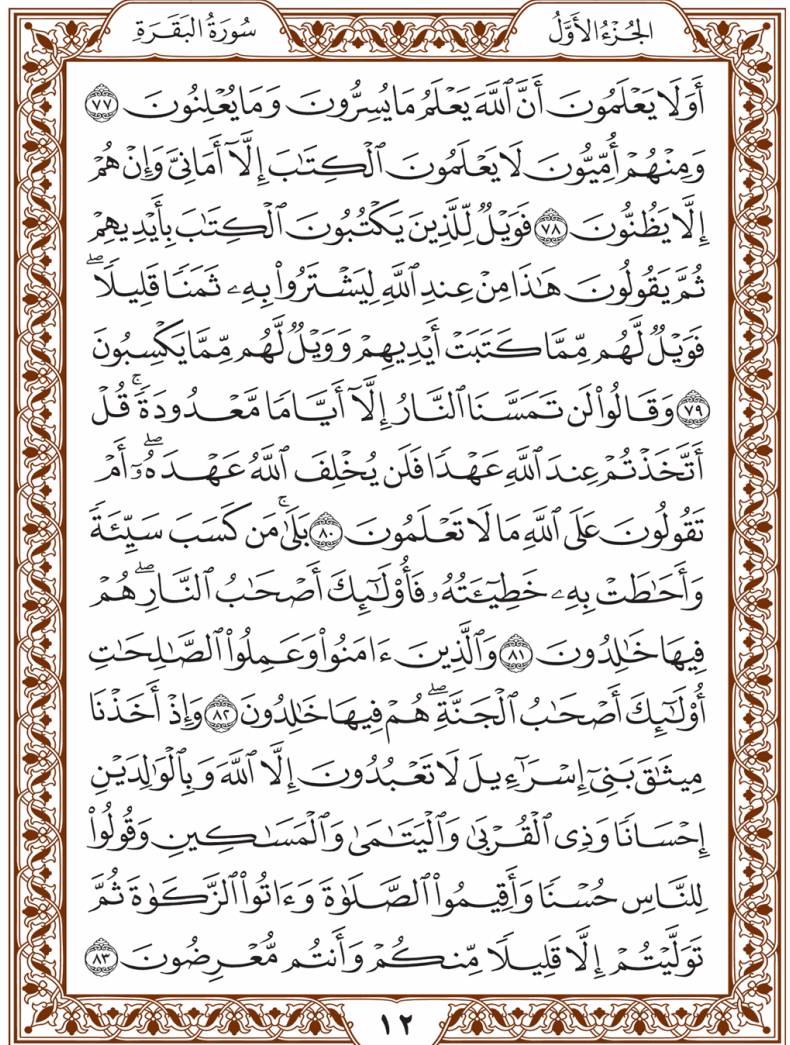 الجُزْءُ الأَوَّلُ سُورَةُ البَقَرَةِ
أَوَلَا يَعْلَمُونَ أَنَّ ٱللَّهَ يَعْلَمُ مَا يُسِرُّونَ وَمَا يُعْلِنُونَ ٧٧
وَمِنْهُمْ أُمِّيُّونَ لَا يَعْلَمُونَ ٱلْكِتَٰبَ إِلَّآ أَمَانِىَّ وَإِنْ هُمْ
إِلَّا يَظُنُّونَ ٧٨ فَوَيْلٌ لِّلَّذِينَ يَكْتُبُونَ ٱلْكِتَٰبَ بِأَيْدِيهِمْ
ثُمَّ يَقُولُونَ هَٰذَا مِنْ عِندِ ٱللَّهِ لِيَشْتَرُوا۟ بِهِۦ ثَمَنًا قَلِيلًا ۖ
فَوَيْلٌ لَّهُم مِّمَّا كَتَبَتْ أَيْدِيهِمْ وَوَيْلٌ لَّهُم مِّمَّا يَكْسِبُونَ
٧٩ وَقَالُوا۟ لَن تَمَسَّنَا ٱلنَّارُ إِلَّآ أَيَّامًا مَّعْدُودَةً ۚ قُلْ
أَتَّخَذْتُمْ عِندَ ٱللَّهِ عَهْدًا فَلَن يُخْلِفَ ٱللَّهُ عَهْدَهُۥٓ ۖ أَمْ
تَقُولُونَ عَلَى ٱللَّهِ مَا لَا تَعْلَمُونَ ٨٠ بَلَىٰ ۚ مَن كَسَبَ سَيِّئَةً
وَأَحَٰطَتْ بِهِۦ خَطِيٓـَٔتُهُۥ فَأُو۟لَٰٓئِكَ أَصْحَٰبُ ٱلنَّارِ ۖ هُمْ
فِيهَا خَٰلِدُونَ ٨١ وَٱلَّذِينَ ءَامَنُوا۟ وَعَمِلُوا۟ ٱلصَّٰلِحَٰتِ
أُو۟لَٰٓئِكَ أَصْحَٰبُ ٱلْجَنَّةِ ۖ هُمْ فِيهَا خَٰلِدُونَ ٨٢ وَإِذْ أَخَذْنَا
مِيثَٰقَ بَنِىٓ إِسْرَٰٓءِيلَ لَا تَعْبُدُونَ إِلَّا ٱللَّهَ وَبِٱلْوَٰلِدَيْنِ
إِحْسَانًا وَذِى ٱلْقُرْبَىٰ وَٱلْيَتَٰمَىٰ وَٱلْمَسَٰكِينِ وَقُولُوا۟
لِلنَّاسِ حُسْنًا وَأَقِيمُوا۟ ٱلصَّلَوٰةَ وَءَاتُوا۟ ٱلزَّكَوٰةَ ثُمَّ
تَوَلَّيْتُمْ إِلَّا قَلِيلًا مِّنكُمْ وَأَنتُم مُّعْرِضُونَ ٨٣
١٢